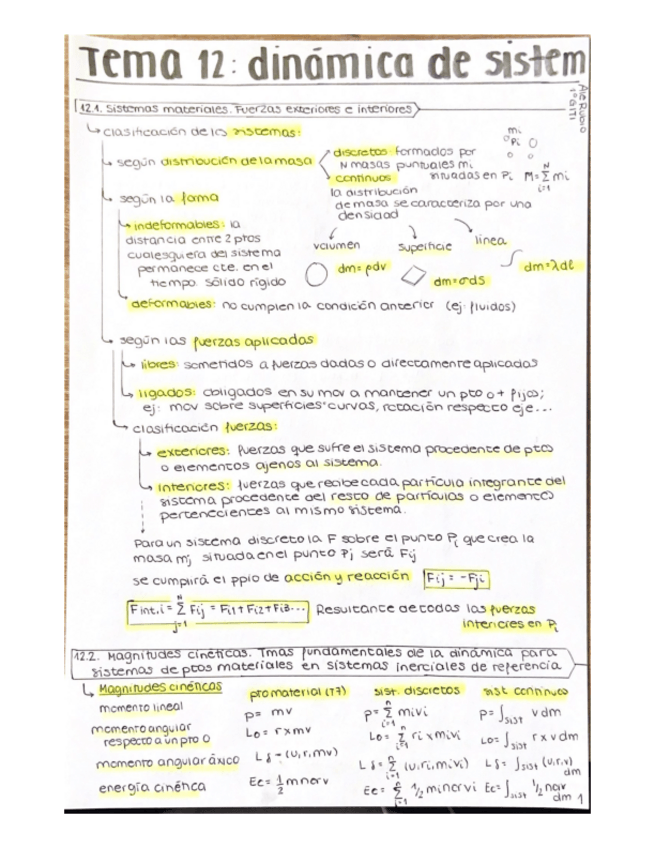 Tema 12: dinámica de sistem
Ale Rubio
1º GITI
12.1. Sistemas materiales. Fuerzas exteriores e interiores
clasificación de los sistemas:
según distribución de la masa
discretos: formados por
N masas puntuales mi
situadas en Pi
mi
Pi
M = Σ mi
N
i=1
continuos
la distribución
de masa se caracteriza por una
densidad
volumen
superficie
línea
dm = ρdv
dm = σds
dm = λdl
según la forma
indeformables: la
distancia entre 2 ptos
cualesquiera del sistema
permanece cte. en el
tiempo. sólido rígido
deformables: no cumplen la condición anterior (ej: fluidos)
según las fuerzas aplicadas
libres: sometidos a fuerzas dadas o directamente aplicadas
ligados: obligados en su mov a mantener un pto o + fijos;
ej: mov sobre superficies, curvas, rotación respecto eje...
clasificación fuerzas:
exteriores: fuerzas que sufre el sistema procedente de ptos
o elementos ajenos al sistema.
interiores: fuerzas que recibe cada partícula integrante del
sistema procedente del resto de partículas o elementos
pertenecientes al mismo sistema.
Para un sistema discreto la F sobre el punto Pi que crea la
masa mj situada en el punto Pj será Fij
se cumplirá el ppio de acción y reacción Fij = -Fji
N
Fint,i = Σ Fij = Fi1 + Fi2 + Fi3... Resultante de todas las fuerzas
j=1
interiores en Pi
12.2. Magnitudes cinéticas. Tmas fundamentales de la dinámica para
sistemas de ptos materiales en sistemas inerciales de referencia
Magnitudes cinéticas pto material (T7) sist. discretos sist continuos
momento lineal p = mv p = Σ mivi p = ∫sist v dm
momento angular
respecto a un pto O Lo = r x mv Lo = Σ ri x mivi Lo = ∫sist r x v dm
momento angular áxico Lδ = (u, r, mv) Lδ = Σ (u, ri, mivi) Lδ = ∫sist (u, r, v) dm
energía cinética Ec = 1/2 m
1